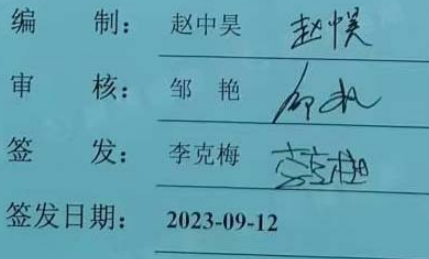 编 制： 赵中昊 赵中昊
审 核： 邹 艳 邹艳
签 发： 李克梅 李克梅
签发日期： 2023-09-12